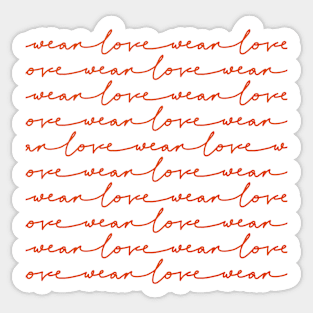 wear love wear love
ove wear love wear
wear love wear love
ove wear love wear
ar love wear love w
ove wear love wear
wear love wear love
ove wear love wear
wear love wear love
ove wear love wear